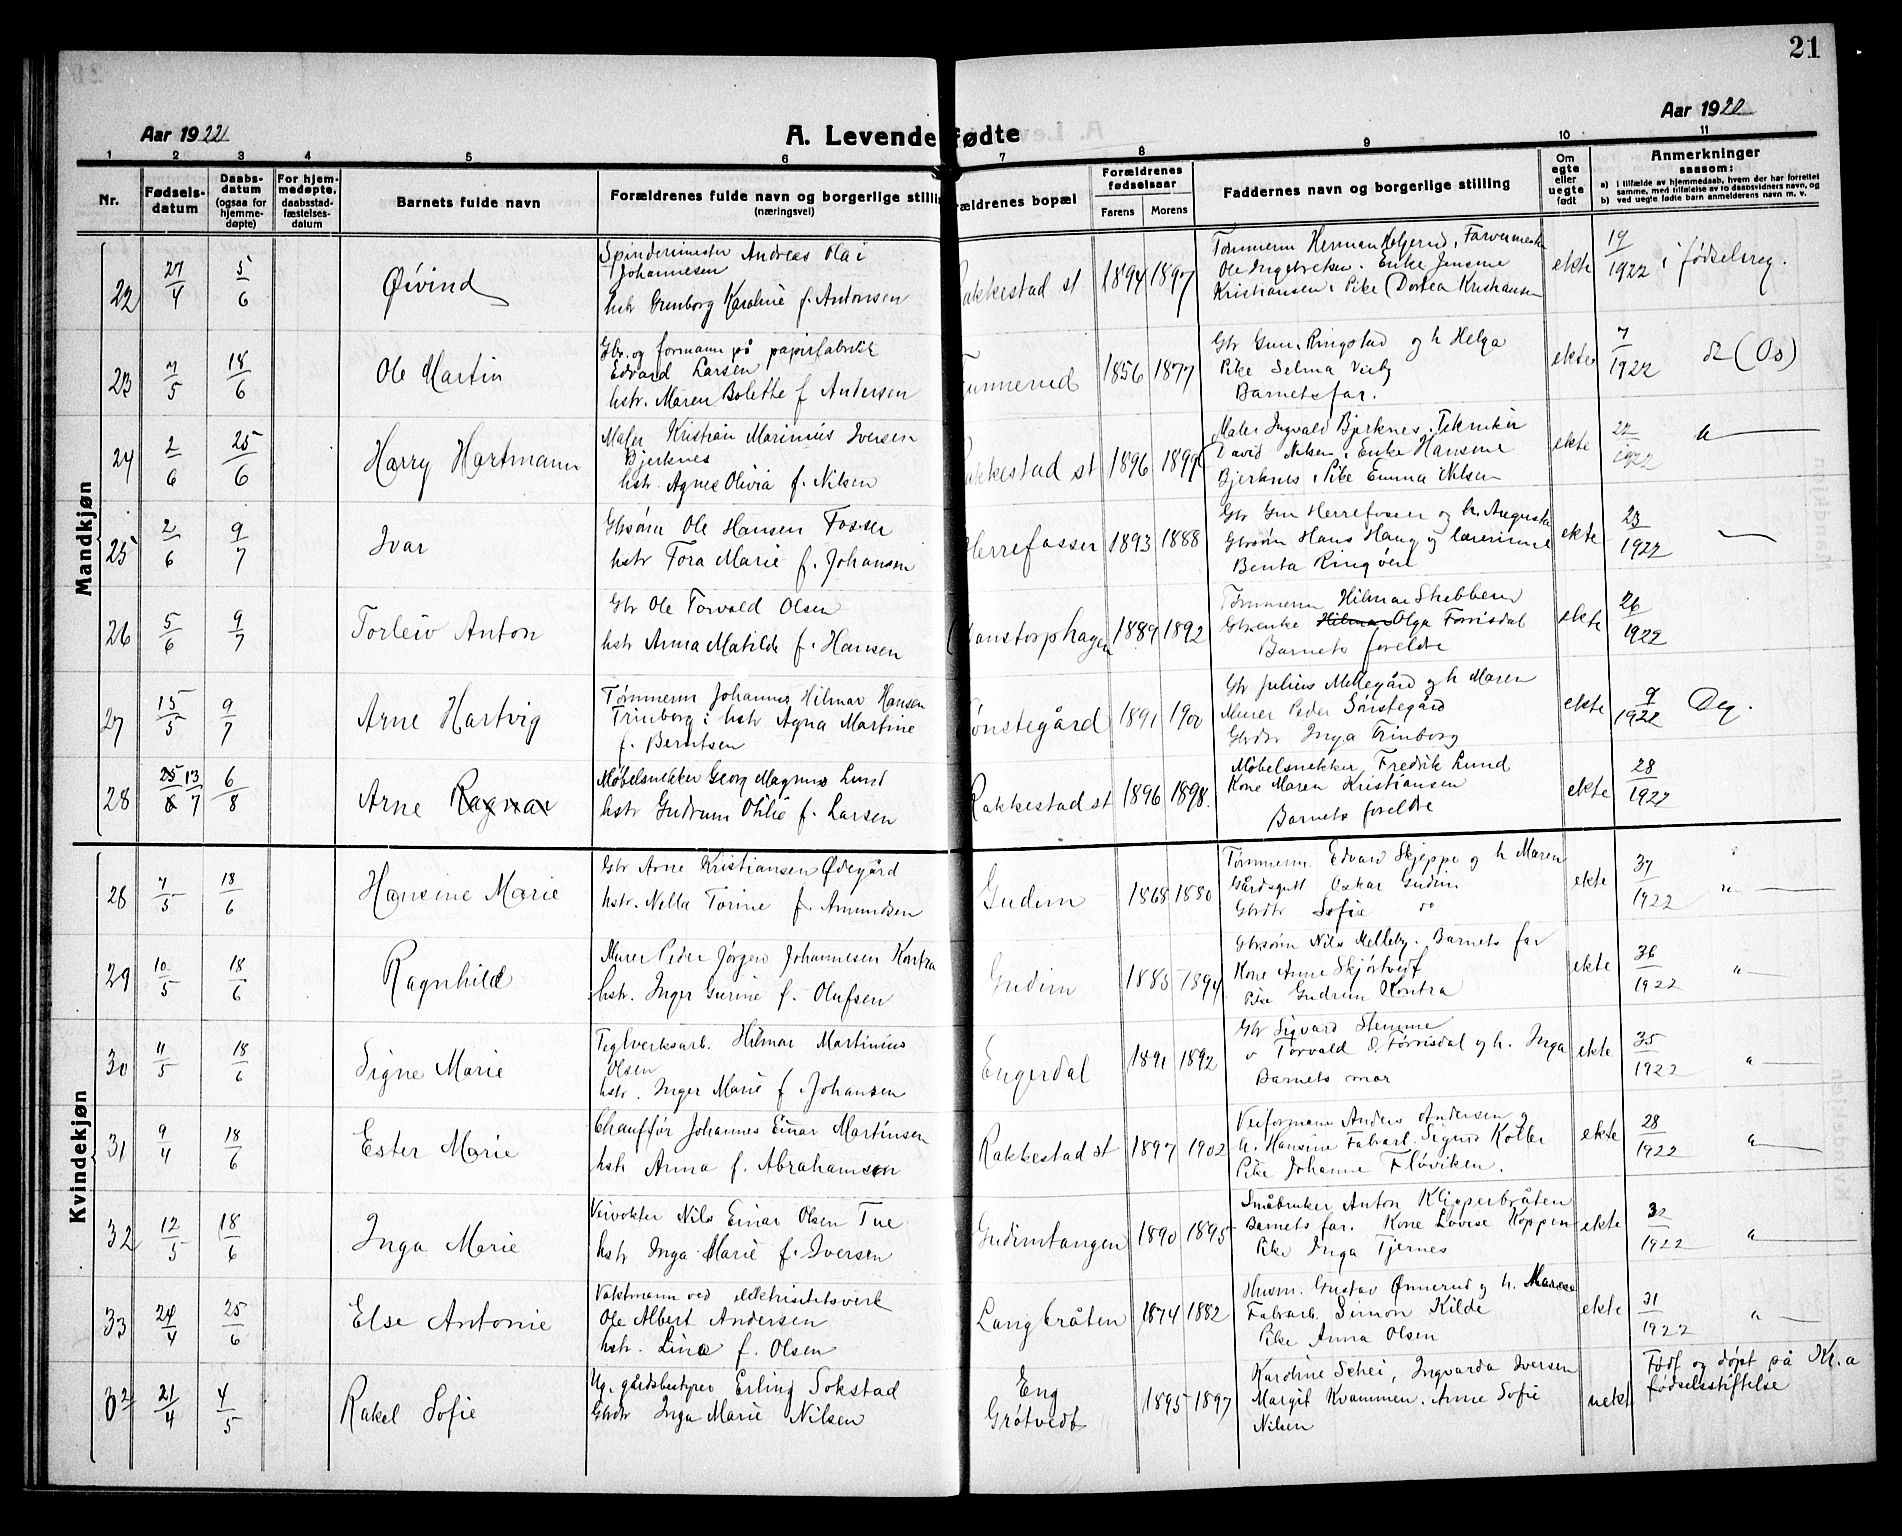 21
Aar 1922
A. Levende fødte
Aar 1922
1 2 3 4 5 6 7 8 9 10 11
Nr.
Fødsels-
datum
Daabs-
datum
(ogsaa for
hjemme-
døpte)
For hjem-
medøpte,
daabsstad-
fæstelses-
datum
Barnets fulde navn
Forældrenes fulde navn og borgerlige stillin
(næringsvei)
ældrenes bopæl
Forældrenes
fødselsaar
Farens Morens
Faddernes navn og borgerlige stilling
Om
egte
eller
uegte
født
Anmerkninger
saasom:
a) i tilfælde av hjemmedaab, hvem der har forrettet
samme, med tilføielse av to daabsvidners navn, og
b) ved uegte fødte barn anmelderens navn m. v.
Mandkjøn
22 27/4 5/6 Øivind
Spinderimester Andreas Olai
Johannesen
hstr Gunborg Karoline f. Antonsen
akkestad st 1894 1897
Tømmerm Herman Holgerud, Farvermester
Ole Ingebretsen. Enke Jensine
Kristiansen, Pike Dortea Kristiansen
ekte 19/1922 i fødselsreg.
23 7/5 18/6 Ole Martin
Gbr. og formann på papirfabrikk
Edvard Larsen
hstr. Maren Bolette f Andersen
unnerud 1856 1877
Gbr Gun. Ringstad og h Helga
Pike Selma Viby
Barnets far.
ekte 7/1922 do (Os)
24 2/6 25/6 Harry Hartmann
Maler Kristian Marinius Iversen
Bjerknes
hstr. Agnes Olivia f. Nilsen
akkestad st 1896 1899
Maler Ingvald Bjerknes, Tekniker
David Nilsen, Enke Hansine
Bjerknes, Pike Emma Nilsen
ekte 22/1922 "
25 2/6 9/7 Ivar
Gbrsønn Ole Hansen Fosser
hstr Tora Marie f. Johansen
Herrefosser 1893 1888
Gbr Gun Herrefosser og h. Augusta
Gbrsønn Hans Haug og lærerinne
Benta Ringøen
ekte 23/1922
26 5/6 9/7 Torleiv Anton
Gbr Ole Torvald Olsen
hstr Anna Matilde f. Hansen
anstorphagen 1889 1892
Tømmerm Hilmar Stubberud
Gbrenke Hilmar Olga Førrisdal
Barnets foreldre
ekte 26/1922
27 15/5 9/7 Arne Hartvig
Tømmerm Johannes Hilmar Hansen
Trinborg, hstr Agna Martine
f. Berntsen
ønstegård 1891 1900
Gbr Julius Mellegård og h Maren
Murer Peder Sønstegård
Gbrdtr Inga Trinborg
ekte 9/1922 Deg.
28 25/6 13/7 6/8 Arne Ragnar
Møbelsnekker Georg Magnus Lund
hstr Gudrun Otilie f. Larsen
Rakkestad st 1896 1898.
Møbelsnekker Fredrik Lund
Kone Maren Kristiansen
Barnets foreldre
ekte 28/1922
Kvindekjøn
28 7/5 18/6 Hansine Marie
Gbr Arne Kristiansen Ødegård
hstr. Nella Torine f. Amundsen
Gudim 1868 1880
Tømmerm Edvard Skjeppe og h Maren
Gårdsgutt Oskar Gudim
Gbrdtr Sofie do
ekte 37/1922 "
29 10/5 18/6 Ragnhild
Murer Peder Jørgen Johannesen Kontra
hstr. Inger Gurine f. Olufsen
Gudim 1885 1894
Gbrsønn Nils Melleby. Barnets far
Kone Anne Skjørtvedt
Pike Gudrun Kontra
ekte 36/1922 "
30 11/5 18/6 Signe Marie
Teglverksarb. Hilmar Martinius
Olsen
hstr. Inger Marie f Johansen
Engerdal 1891 1892
Gbr Sigvard Stemme
" Torvald O. Førrisdal og h. Inga
Barnets mor
ekte 35/1922 "
31 9/4 18/6 Ester Marie
Chauffør Johannes Einar Martinsen
hstr Anna f. Abrahamsen
Rakkestad st 1897 1902
Veiformann Anders Andersen og
h. Hansine Fabarb. Sigurd Kolbe
Pike Johanne Fløviken.
ekte 28/1922 "
32 12/5 18/6 Inga Marie
Veivokter Nils Einar Olsen Tue
hstr Inga Marie f. Iversen
Gudimtangen 1890 1895
Småbruker Anton Klopperbråten
Barnets far. Kone Lovise Koppen
Pike Inga Tjernes
ekte 32/1922 "
33 24/4 25/6 Else Antonie
Vaktmann ved elektrisitetsverk
Ole Albert Andersen
hstr. Lina f. Olsen
Langbråten 1874 1882
Husm. Gustav Ønnerud og h. Maren
Fabarb. Simon Kilde
Pike Anna Olsen
ekte 31/1922 "
32 21/4 4/5 Rakel Sofie
Ug. gårdsbestyrer Erling Sokstad
Gbrdtr Inga Marie Nilsen
Eng
Grøtvedt 1895 1897
Karoline Schei, Ingvarda Iversen
Margit Kvammen. Anne Sofie
Nilsen
uekte
Født og døpt på Kr.a
fødselsstiftelse